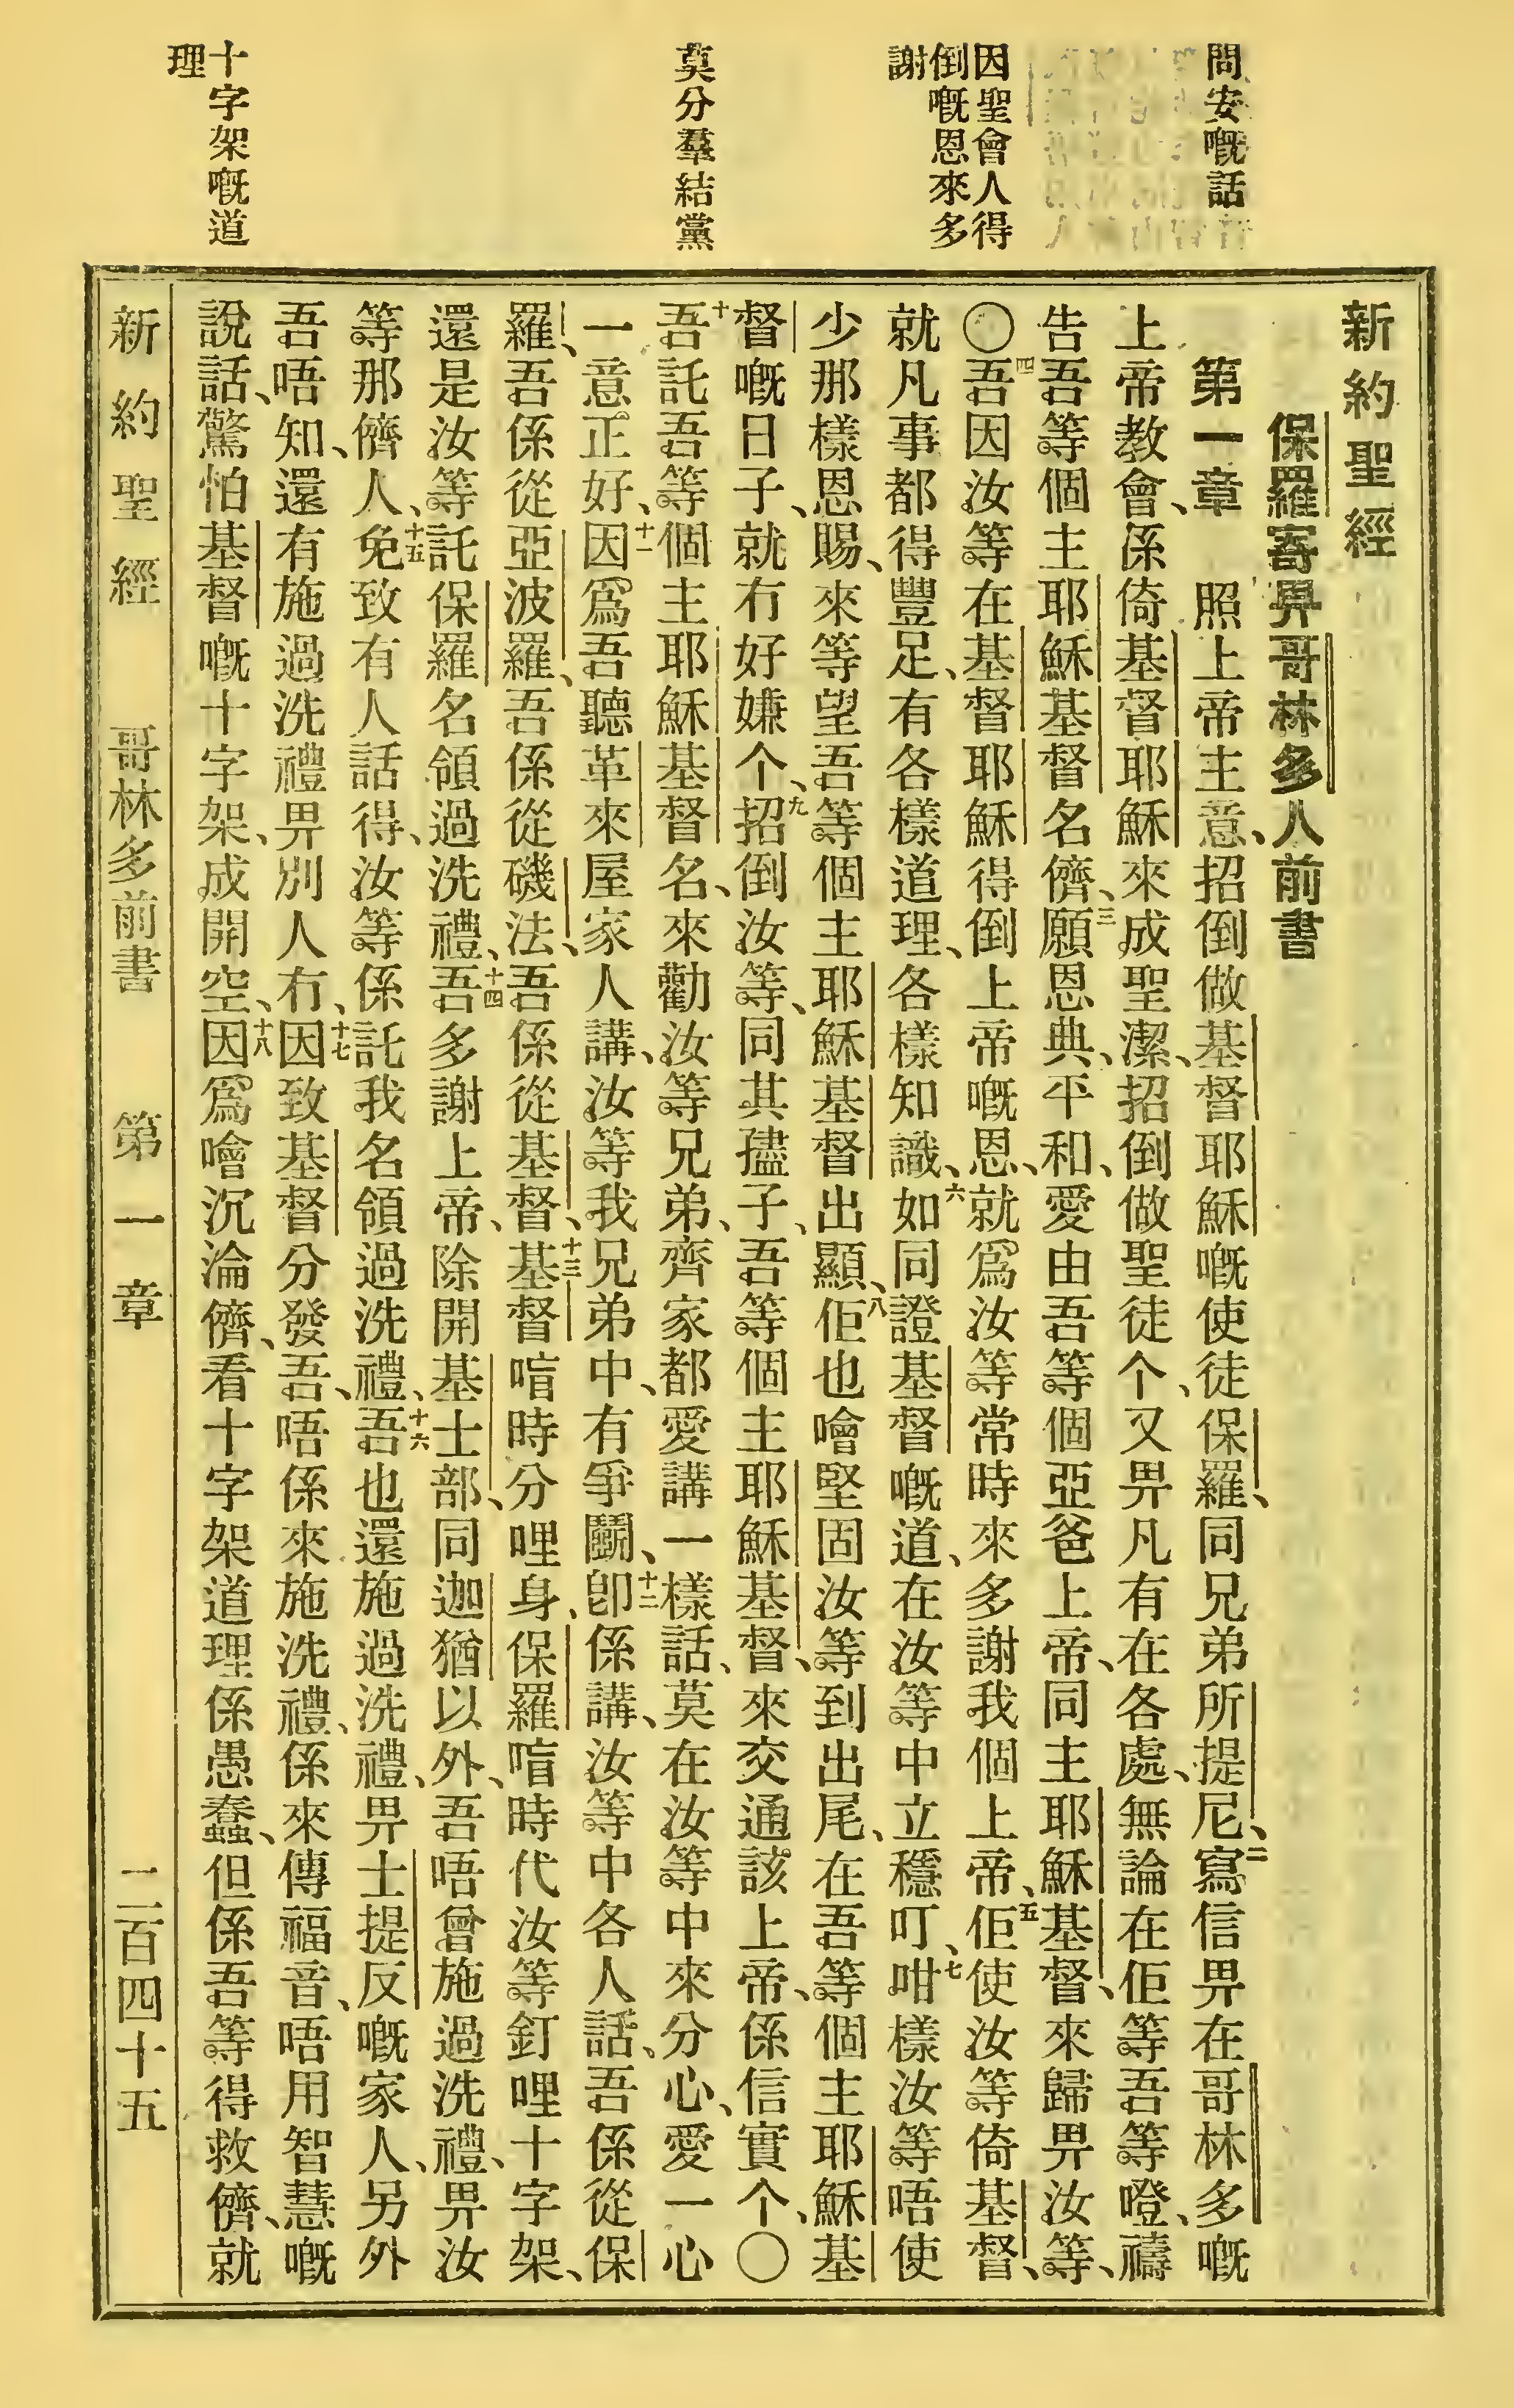 問安嘅話
因聖會人得
倒嘅恩來多
謝
莫分羣結黨
十字架嘅道
理
新約聖經
保羅寄畀哥林多人前書
第一章 照上帝主意、招倒做基督耶穌嘅使徒保羅、同兄弟所提尼、二寫信畀在哥林多嘅
上帝教會、係倚基督耶穌來成聖潔、招倒做聖徒个、又畀凡有在各處、無論在佢等吾等噔、禱
告吾等個主耶穌基督名儕、三願恩典、平和、愛由吾等個亞爸上帝、同主耶穌基督、來歸畀汝等、
〇四吾因汝等在基督耶穌得倒上帝嘅恩、就爲汝等常時來多謝我個上帝、五佢使汝等倚基督、
就凡事都得豐足、有各樣道理、各樣知識、六如同證基督嘅道、在汝等中立穩叮、七咁樣汝等唔使
少那樣恩賜、來等望吾等個主耶穌基督出顯、八佢也噲堅固汝等到出尾、在吾等個主耶穌基
督嘅日子、就冇好嫌个、九招倒汝等、同其孻子、吾等個主耶穌基督、來交通該上帝、係信實个、〇
十吾託吾等個主耶穌基督名、來勸汝等兄弟、齊家都愛講一樣話、莫在汝等中來分心、愛一心
一意正好、十一因爲吾聽革來屋家人講、汝等我兄弟中、有爭鬭、十二卽係講、汝等中各人話、吾係從保
羅、吾係從亞波羅、吾係從磯法、吾係從基督、十三基督喑時分哩身、保羅喑時代汝等釘哩十字架、
還是汝等託保羅名領過洗禮、十四吾多謝上帝、除開基士部、同迦猶以外、吾唔曾施過洗禮、畀汝
等那儕人、十五免致有人話得、汝等係託我名領過洗禮、十六吾也還施過洗禮、畀士提反嘅家人、另外
吾唔知、還有施過洗禮畀別人冇、十七因致基督分發吾、唔係來施洗禮、係來傳福音、唔用智慧嘅
說話、驚怕基督嘅十字架、成開空、十八因爲噲沉淪儕、看十字架道理係愚蠢、但係吾等得救儕、就
新約聖經 哥林多前書 第一章 二百四十五